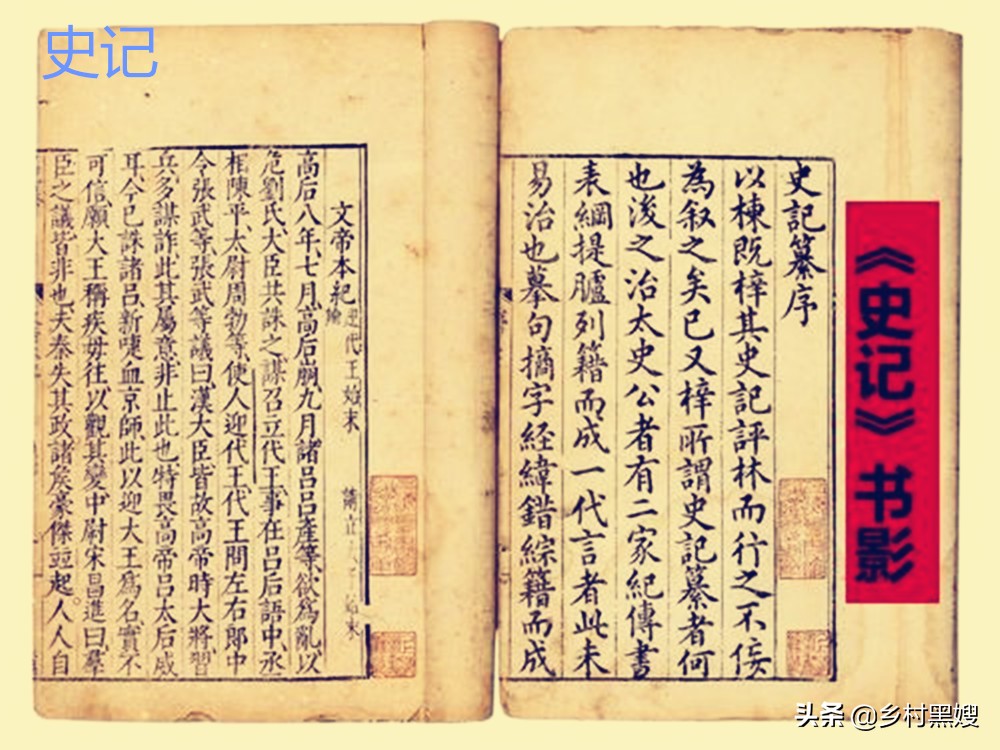 史记
《史记》书影
史記纂序
以棟旣梓其史記評林而行之不佞
為叙之矣已又梓所謂史記纂者何
也浚之治太史公者有二家紀傳書
表綱提臚列籍而成一代言者此未
易治也摹句摘字經緯錯綜籍而成
文帝本紀 迎代王始末
高后八年、七月、高后崩、九月諸呂呂產等、欲爲亂、以
危劉氏、大臣共誅之、謀召立代王、事在呂后語中、丞
相陳平、太尉周勃等、使人迎代王、代王問左右郎中
令張武等、張武等議曰、漢大臣皆故高帝時大將、習
兵、多謀詐、此其屬意非止此也、特畏高帝呂太后威
耳、今已誅諸呂、新啑血京師、此以迎大王爲名、實不
可信、願大王稱疾毋往、以觀其變、中尉宋昌進曰、羣
臣之議皆非也、夫秦失其政、諸矦豪傑竝起。人人自
头条 @乡村黑嫂